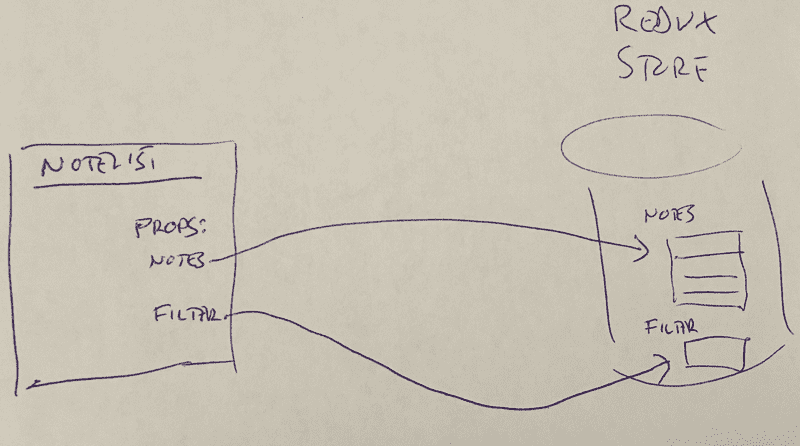 REDUX
STORE
NOTELIST
PROPS:
NOTES
FILTER
NOTES
FILTER